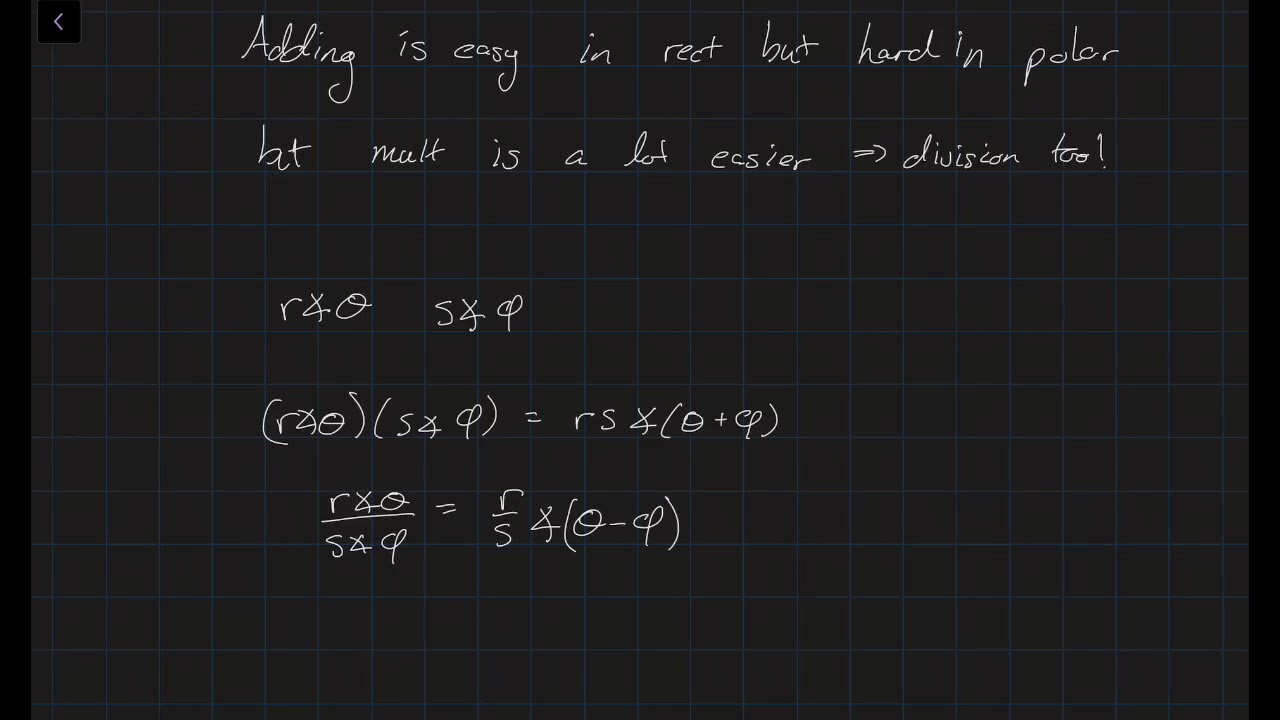 Adding is easy in rect but hard in polar
but mult is a lot easier ⇒ division too!
r∡θ s∡φ
(r∡θ)(s∡φ) = rs∡(θ+φ)
r∡θ/s∡φ = r/s ∡(θ-φ)